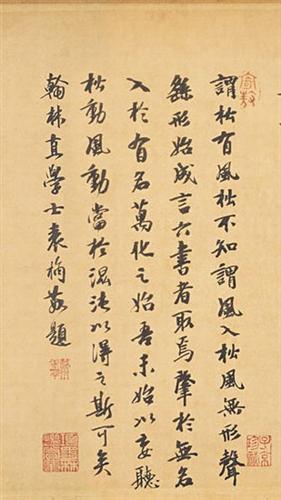 謂松有風松不知謂風入松風無形聲
繇形始成言六書者取焉聲於無名
入於有名萬化之始吾未始以妄聽
松動風動當於混茫以得之斯可矣
翰林直學士袁桷敬題